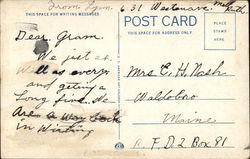 From: Lynn. 631 Westonave.
THIS SPACE FOR WRITING MESSAGES
POST CARD
THIS SPACE FOR ADDRESS ONLY.
PLACE
STAMP
HERE
Dear, Gram.
We just as
Well as ever
and getting a
Long fine. We
Are a way Back
in Writing
Mrs E. H. Nash
Waldoboro
Maine
R.F.D. 2 Box 81